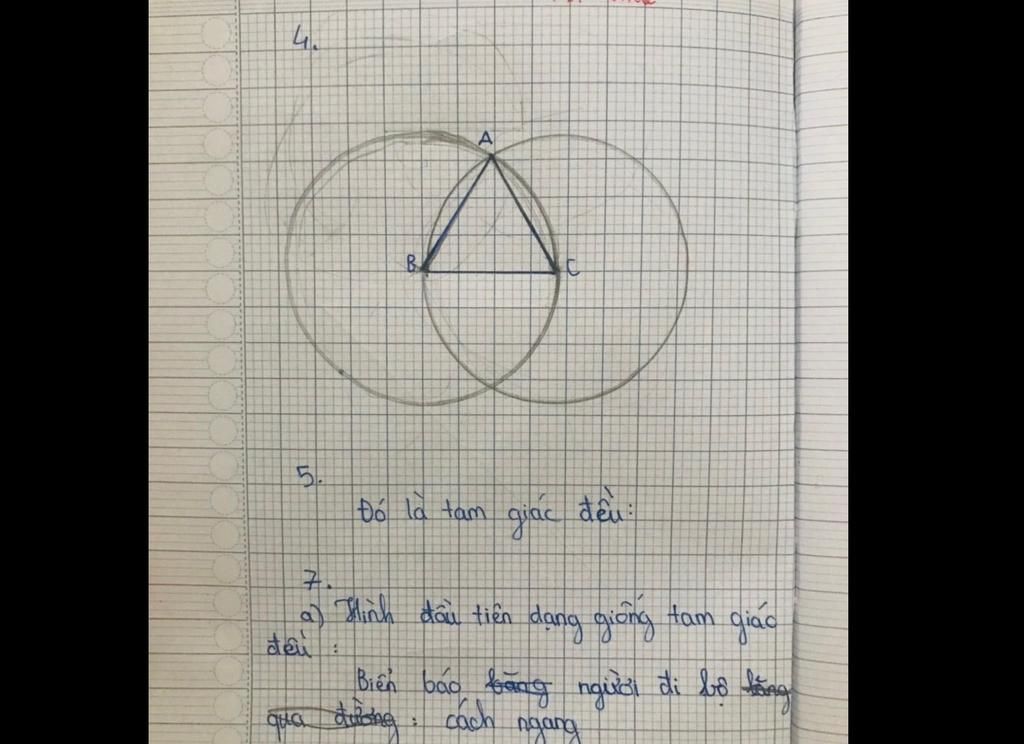 4.
A
B C
5.
Đó là tam giác đều:
7.
a) Hình đầu tiên dạng giống tam giác
đều :
Biển báo băng người đi bộ băng
qua đường : cách ngang